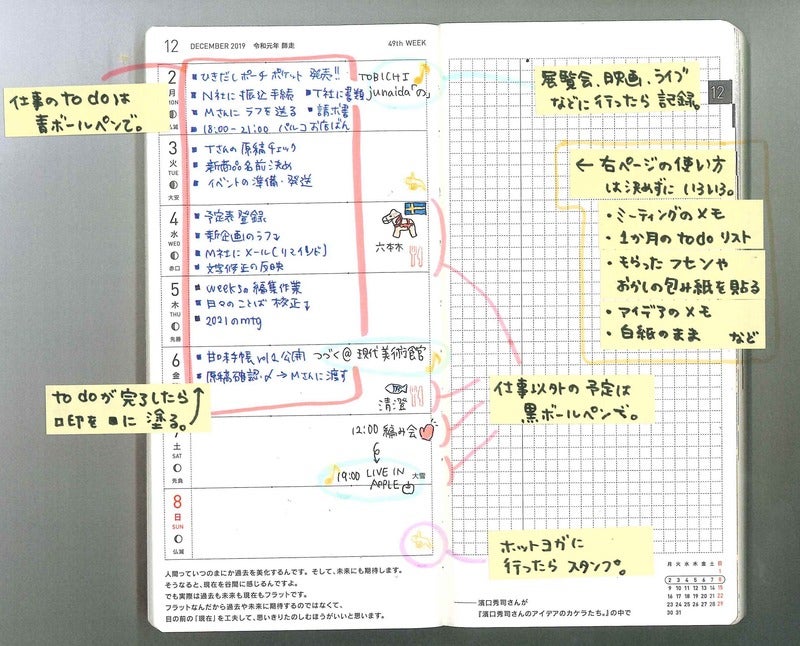 12 DECEMBER 2019 令和元年 師走 49th WEEK
仕事のto doは
青ボールペンで。
2
月
MON
仏滅
■ ひきだしポーチ ポケット 発売!!
■ N社に振込手続 ■ T社に書類
■ Mさんにラフを送る ■ 請求書
■ 18:00-21:00 パルコお店ばん
TOBICHI
junaida「の」
3
火
TUE
大安
■ Tさんの原稿チェック
■ 新商品名前決め
■ イベントの準備・発送
4
水
WED
赤口
■ 予定表登録
■ 新企画のラフ↓
■ M社にメール(リマインド)
■ 文字修正の反映
六本木
5
木
THU
先勝
■ weeksの編集作業
■ 日々のことば 校正↓
■ 2021のmtg
6
金
■ 甘口手帳 vol2 公開
■ 原稿確認・〆→Mさんに渡す
つづく@現代美術館
清澄
to doが完了したら
□印を■に塗る。
7
土
SAT
先負
12:00 編み会
19:00 LIVE IN
APPLE
大雪
8
日
SUN
仏滅
人間っていつのまにか過去を美化するんです。そして、未来にも期待します。
そうなると、現在を谷間に感じるんですよ。
でも実際は過去も未来も現在もフラットです。
フラットなんだから過去や未来に期待するのではなくて、
目の前の「現在」を工夫して、思いきりたのしむほうがいいと思います。
展覧会、映画、ライブ
などに行ったら 記録。
12
← 右ページの使い方
は決めずに いろいろ。
・ミーティングのメモ
・1か月のto doリスト
・もらったフセンや
おかしの包み紙を貼る
・アイデアのメモ
・白紙のまま など
仕事以外の予定は
黒ボールペンで。
ホットヨガに
行ったら スタンプ。
月 火 水 木 金 土 日
1
2 3 4 5 6 7 8
9 10 11 12 13 14 15
16 17 18 19 20 21 22
23 24 25 26 27 28 29
30 31
——濱口秀司さんが
『濱口秀司さんのアイデアのカケラたち。』の中で